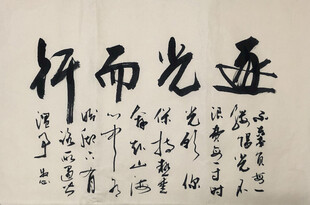 逐光而行
不负每一
缕阳光不
浪费每一寸时
光愿你
保持热爱
奔赴山海
心中有
脚下有
路所遇皆
温柔